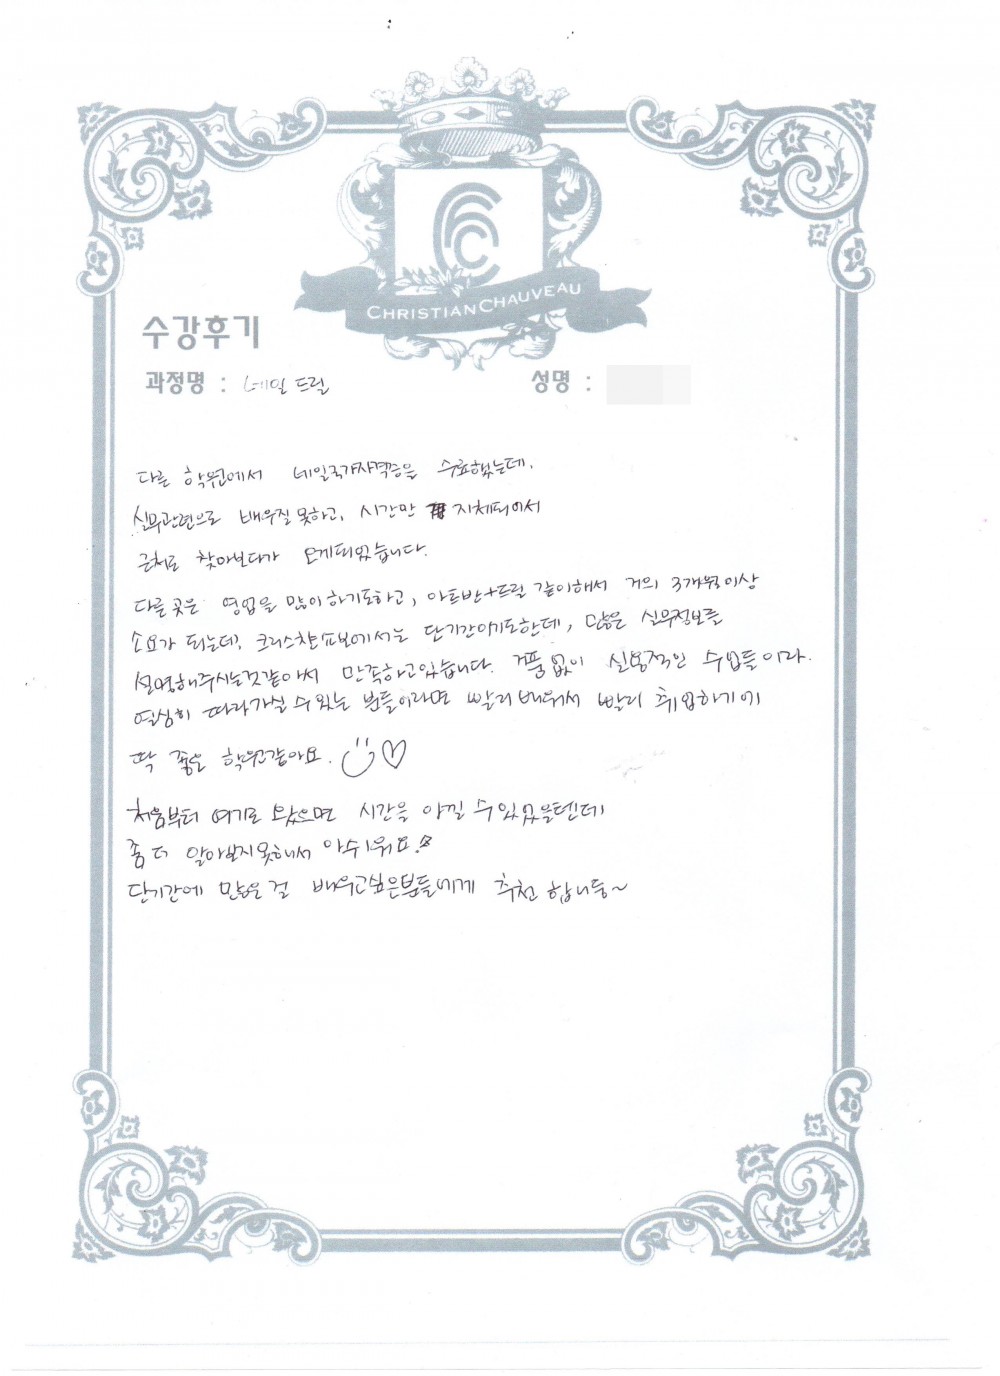 CHRISTIAN CHAUVEAU
수강후기
과정명 : 네일 드릴
성명 :
다른 학원에서 네일국가자격증을 수료했는데,
실무관련으로 배우질 못하고, 시간만 지체되어서
근처로 찾아보다가 오게되었습니다.
다른곳은 영업을 많이하기도하고, 아트반+드릴 같이해서 거의 3개월이상
소요가 되는데, 크리스챤쇼보에서는 단기간이기도한데, 많은 실무정보를
설명해주시는것같아서 만족하고있습니다. 거품 없이 실용적인 수업들이라.
열심히 따라가실 수 있는 분들이라면 빨리 배워서 빨리 취업하기에
딱 좋은 학원같아요.
처음부터 여기로 왔으면 시간을 아낄 수 있었을텐데
좀 더 알아보지못해서 아쉬워요.
단기간에 많은걸 배우고싶은분들에게 추천 합니둥~